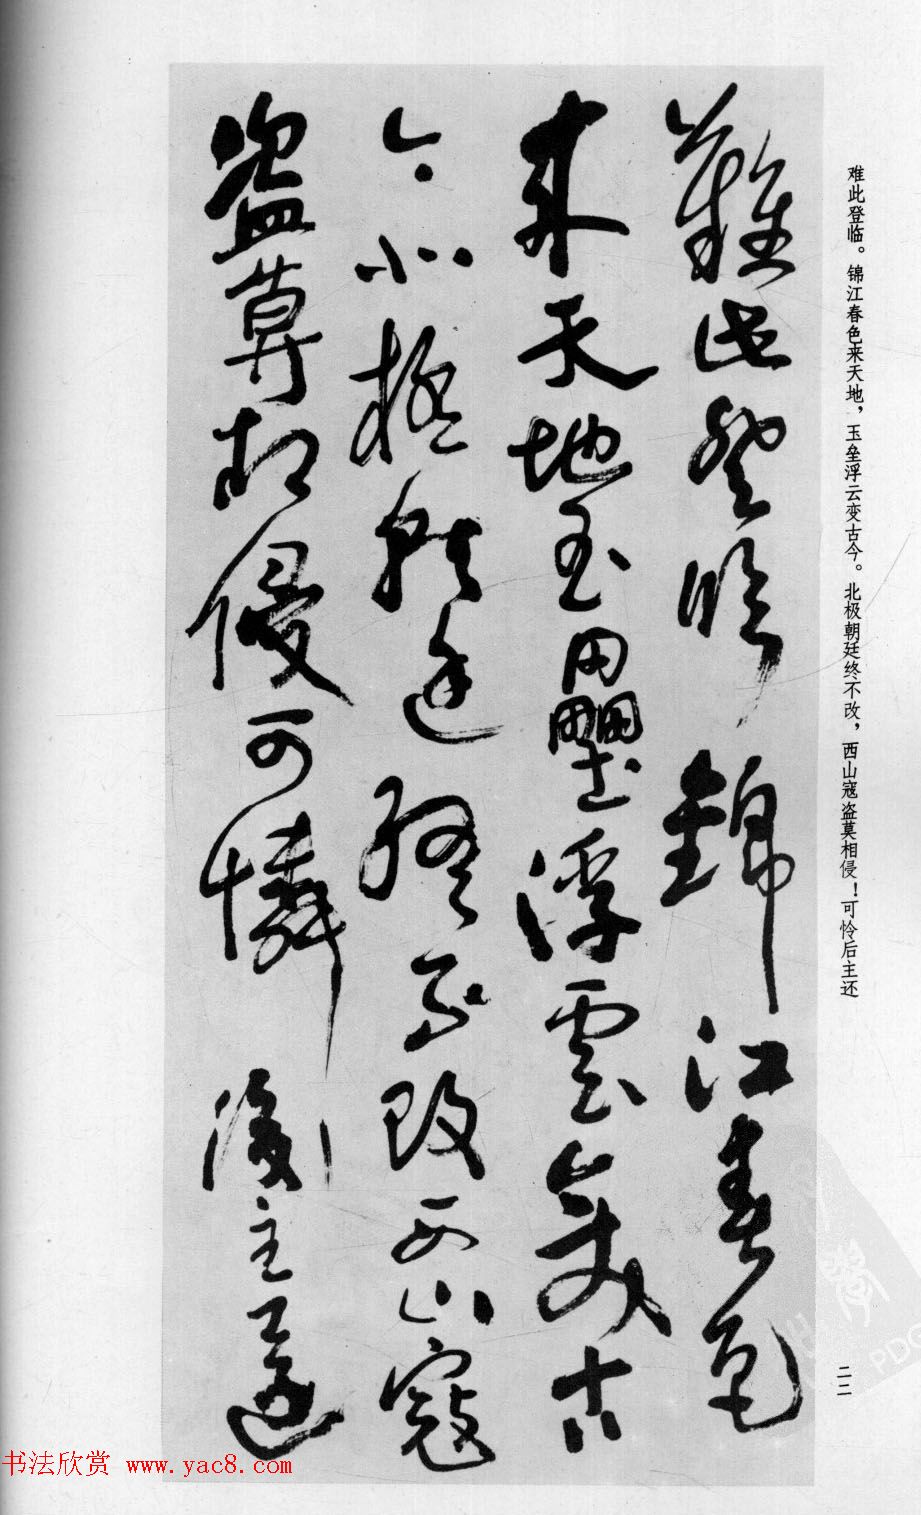 難此登臨錦江春色
來天地玉壘浮雲變古
今北極朝廷終不改西山寇
盗莫相侵可憐後主還
难此登临。锦江春色来天地，玉垒浮云变古今。北极朝廷终不改，西山寇盗莫相侵！可怜后主还
二二
书法欣赏 www.yac8.com